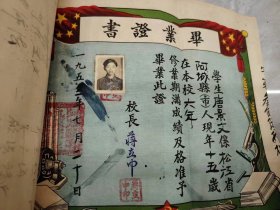 畢業證書
學生唐景文係松江省
阿城縣人現年十五歲
在本校六年
修業期滿成績及格准予
畢業此證
校長 蔣立中
一九五 年七月二十日